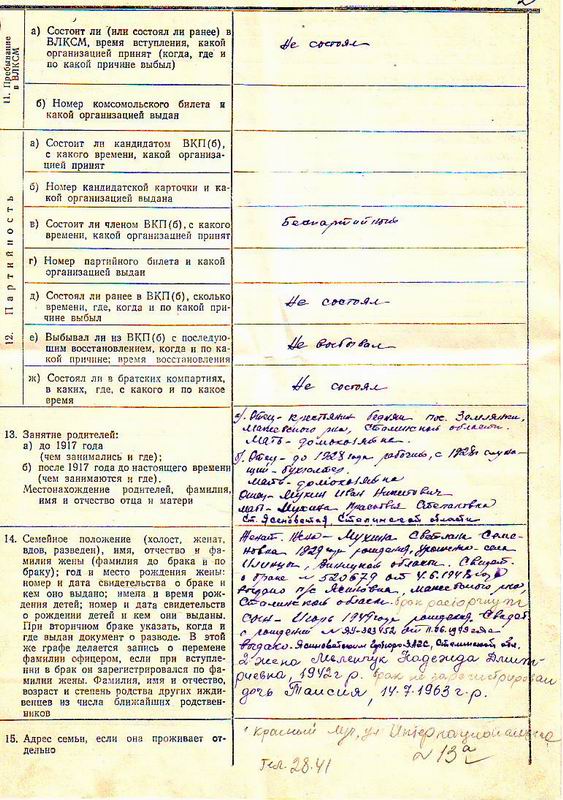 11. Пребывание в ВЛКСМ
а) Состоит ли (или состоял ли ранее) в
ВЛКСМ, время вступления, какой
организацией принят (когда, где и
по какой причине выбыл)
Не состоял
б) Номер комсомольского билета и
какой организацией выдан
12. Партийность
а) Состоит ли кандидатом ВКП(б),
с какого времени, какой организа-
цией принят
б) Номер кандидатской карточки и ка-
кой организацией выдана
в) Состоит ли членом ВКП(б), с какого
времени, какой организацией принят
Беспартийный
г) Номер партийного билета и какой
организацией выдан
д) Состоял ли ранее в ВКП(б), сколько
времени, где, когда и по какой при-
чине выбыл
Не состоял
е) Выбывал ли из ВКП(б) с последую-
щим восстановлением, когда и по ка-
кой причине; время восстановления
Не выбывал
ж) Состоял ли в братских компартиях,
в каких, где, с какого и по какое
время
Не состоял
13. Занятие родителей:
а) до 1917 года
(чем занимались и где);
б) после 1917 года до настоящего времени
(чем занимаются и где).
Местонахождение родителей, фамилия,
имя и отчество отца и матери
а) Отец - крестьянин бедняк пос. Землянки,
Макеевского р-на, Сталинской области.
Мать - домохозяйка.
б) Отец - до 1928 года рабочий, с 1928г служа-
щий - бухгалтер.
Мать - домохозяйка
Отец - Мухин Иван Никитович
Мать - Мухина Степановна
Ст. Ясиноватая Сталинской области
14. Семейное положение (холост, женат,
вдов, разведен), имя, отчество и фа-
милия жены (фамилия до брака и по
браку); год и место рождения жены:
номер и дата свидетельства о браке и
кем оно выдано; имена и время рож-
дения детей; номер и дата свидетельств
о рождении детей и кем они выданы.
При вторичном браке указать, когда и
где выдан документ о разводе. В этой
же графе делается запись о перемене
фамилии офицером, если при вступле-
нии в брак он зарегистрировался по фа-
милии жены. Фамилия, имя и отчество,
возраст и степень родства других ижди-
венцев из числа ближайших родствен-
ников
Женат. Жена - Мухина Светлана
1929 год рождения, села
области. Свидет.
о браке № 520679 от 4.6.1948 года
выдано п/с Ясиновка, Макеевского р-на,
Сталинской области. брак расторгнут
сын - Игорь 1949 года рождения, Свидет.
о рождении
выдано. Сталинской обл.
2 жена Мелентук Надежда Дмит-
риевна, 1942 г.р. брак не зарегистрирован
дочь Таисия, 14.7.1963 г.р.
15. Адрес семьи, если она проживает от-
дельно
г Красный Луч, ул Интернациональная
№ 13а
Тел. 28.41